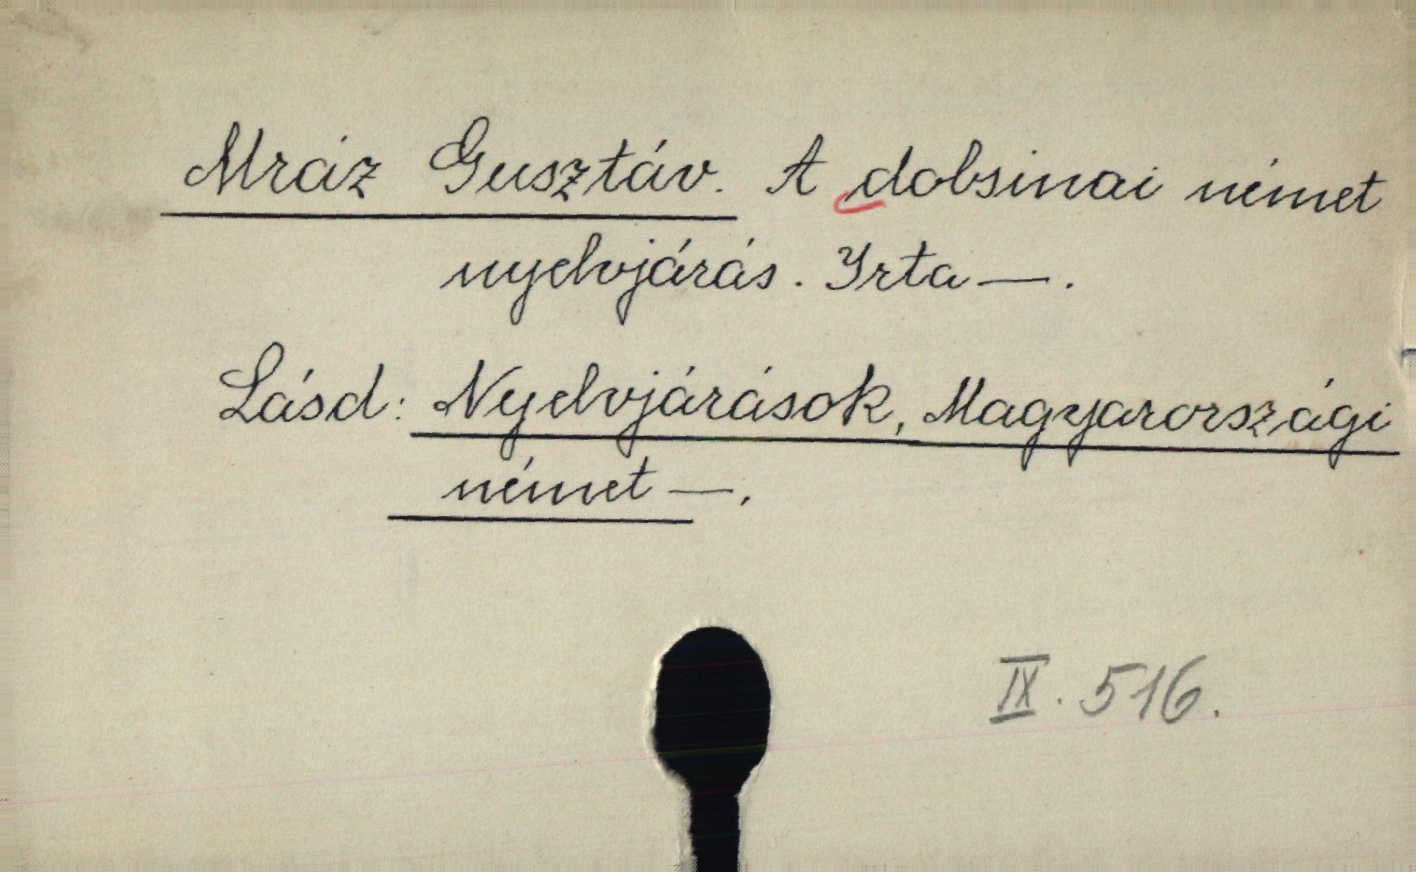 Mráz Gusztáv. A dobsinai német
nyelvjárás. Irta —.
Lásd: Nyelvjárások, Magyarországi
német —.
IX. 516.